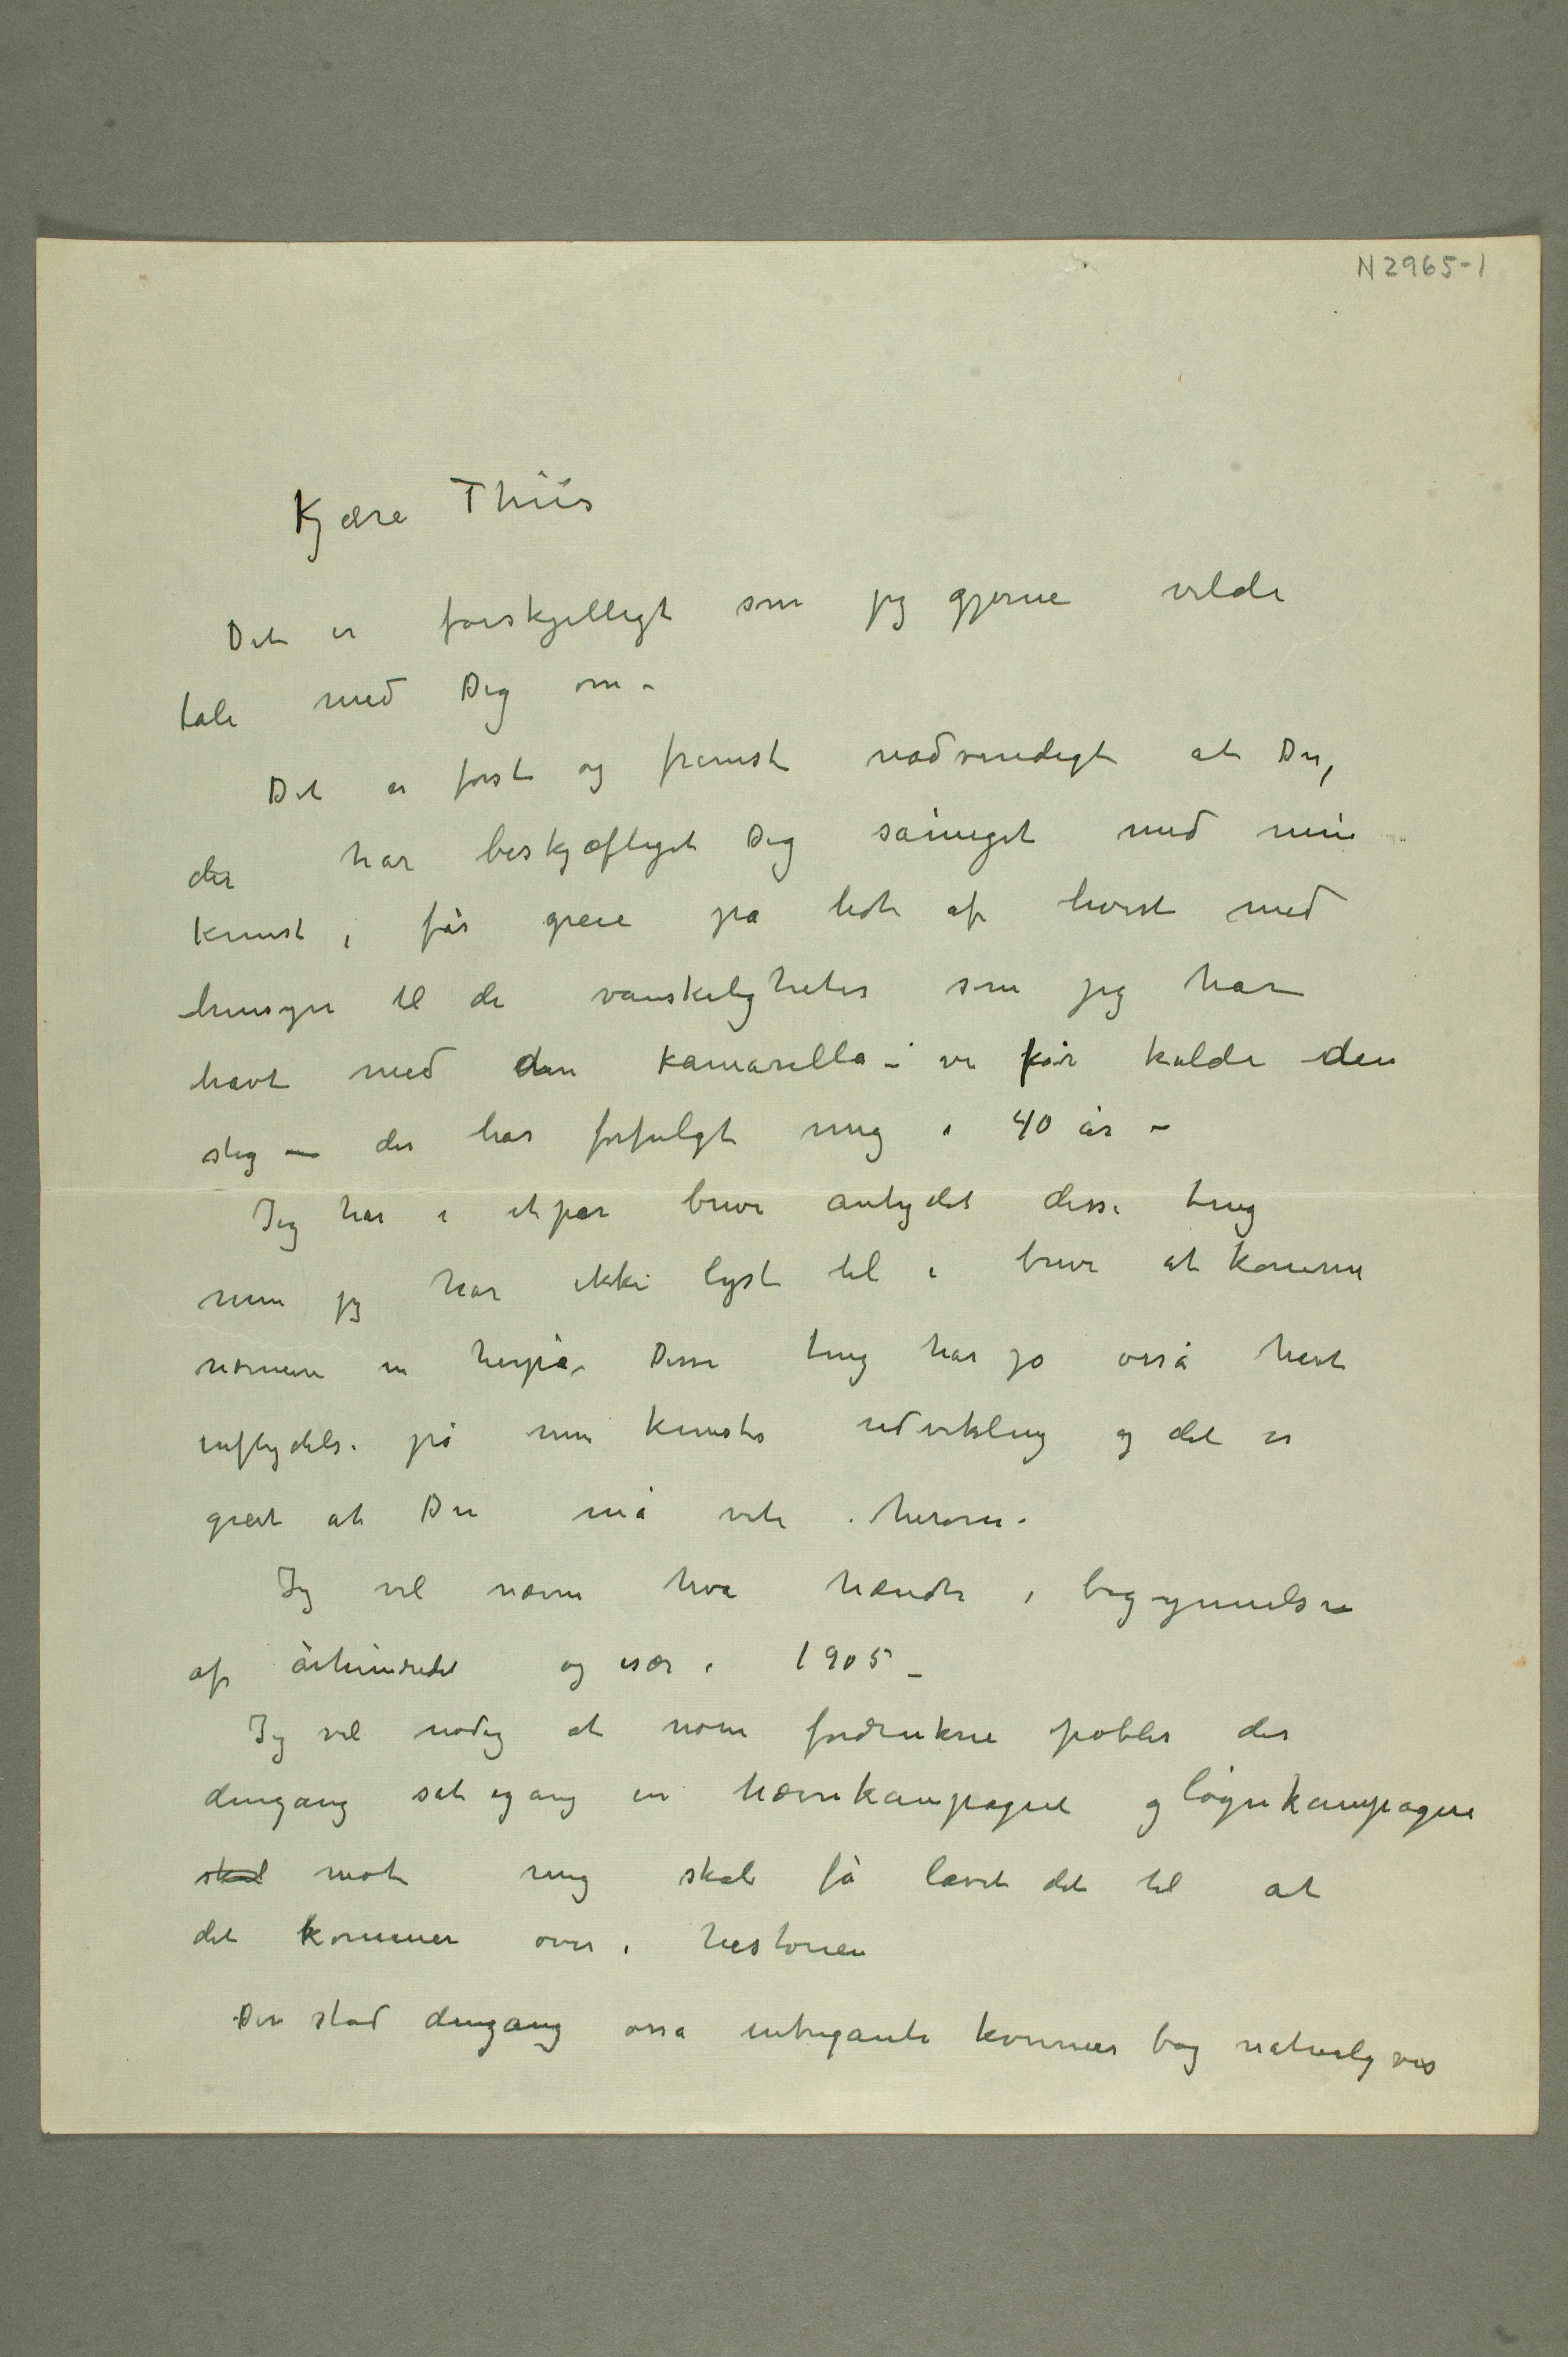 N 2965-1
Kjære Thiis
Det er forskjelligt som jeg gjerne vilde
tale med Dig om –
Det er først og fremst nødvendigt at Du,
der har beskjæftiget Dig såmeget med min
kunst, får greie på lidt af hvert med
hensyn til de vanskeligheter som jeg har
havt med den kamarilla – vi får kalde den
slig — der har forfulgt mig i 40 år –
Jeg har i et par breve antydet disse ting
men jeg har ikke lyst til i breve at komme
nærmere in herpå. Disse ting har jo osså havt
inflydelse på min kunsts udvikling og det er
greit at Du må vite herom.
Jeg vil nævne hva hændte i begynnelsen
af århundredet og især i 1905 –
Jeg vil nødig at noen fordrukne pøbler der
dengang sat igang en hævnkampagne og løgnkampagne
skal mot mig skal få lavet det til at
det kommer over i historien
Der stod dengang osså intrigante kvinner bag naturligvis